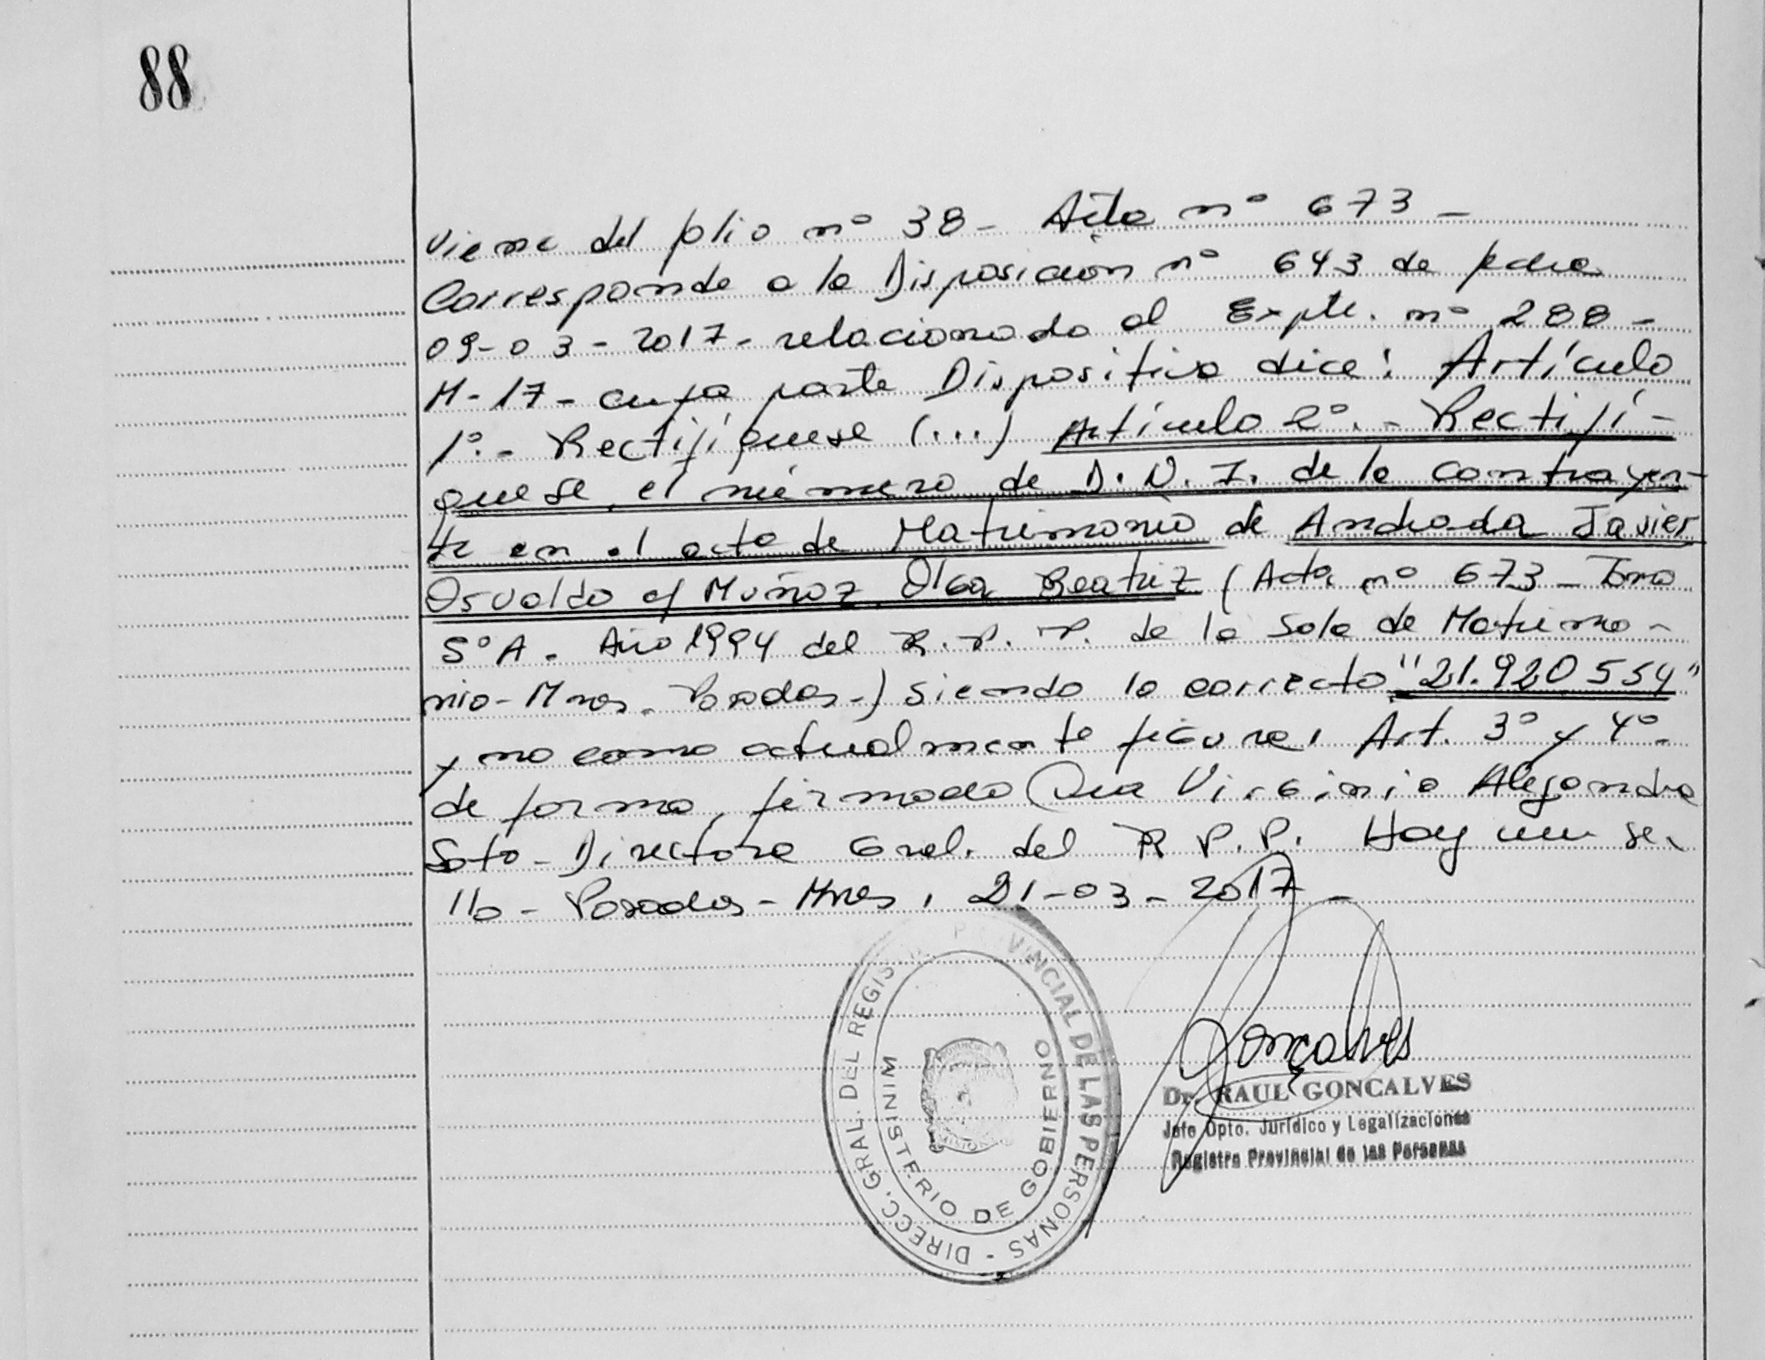 88
Viene del folio nº 38 - Acta nº 673 -
Corresponde a la Disposición nº 643 de fecha
09-03-2017- relacionado al Expte. nº 288-
M-17- cuya parte Dispositiva dice: Artículo
1º.- Rectifíquese (...) Artículo 2º.- Rectifí-
quese el número de D.N.I. de la contrayen-
te en el acta de Matrimonio de Andrada Javier
Osvaldo c/ Muñoz Olga Beatriz (Acta nº 673 - Tomo
5ºA - Año 1994 del R.P.P. de la Sala de Matrimo-
nio - Mnes. Posadas-) siendo lo correcto "21.920554"
y no como actualmente figura, Art. 3º y 4º-
de forma, firmado Dra Virginia Alejandra
Soto - Directora Gral. del R.P.P. Hay un se-
llo - Posadas - Mnes, 21-03-2017-
DIRECC. GRAL. DEL REGISTRO PROVINCIAL DE LAS PERSONAS -
MINISTERIO DE GOBIERNO
Gonçalves
Dr. RAUL GONCALVES
Jefe Dpto. Jurídico y Legalizaciones
Registro Provincial de las Personas